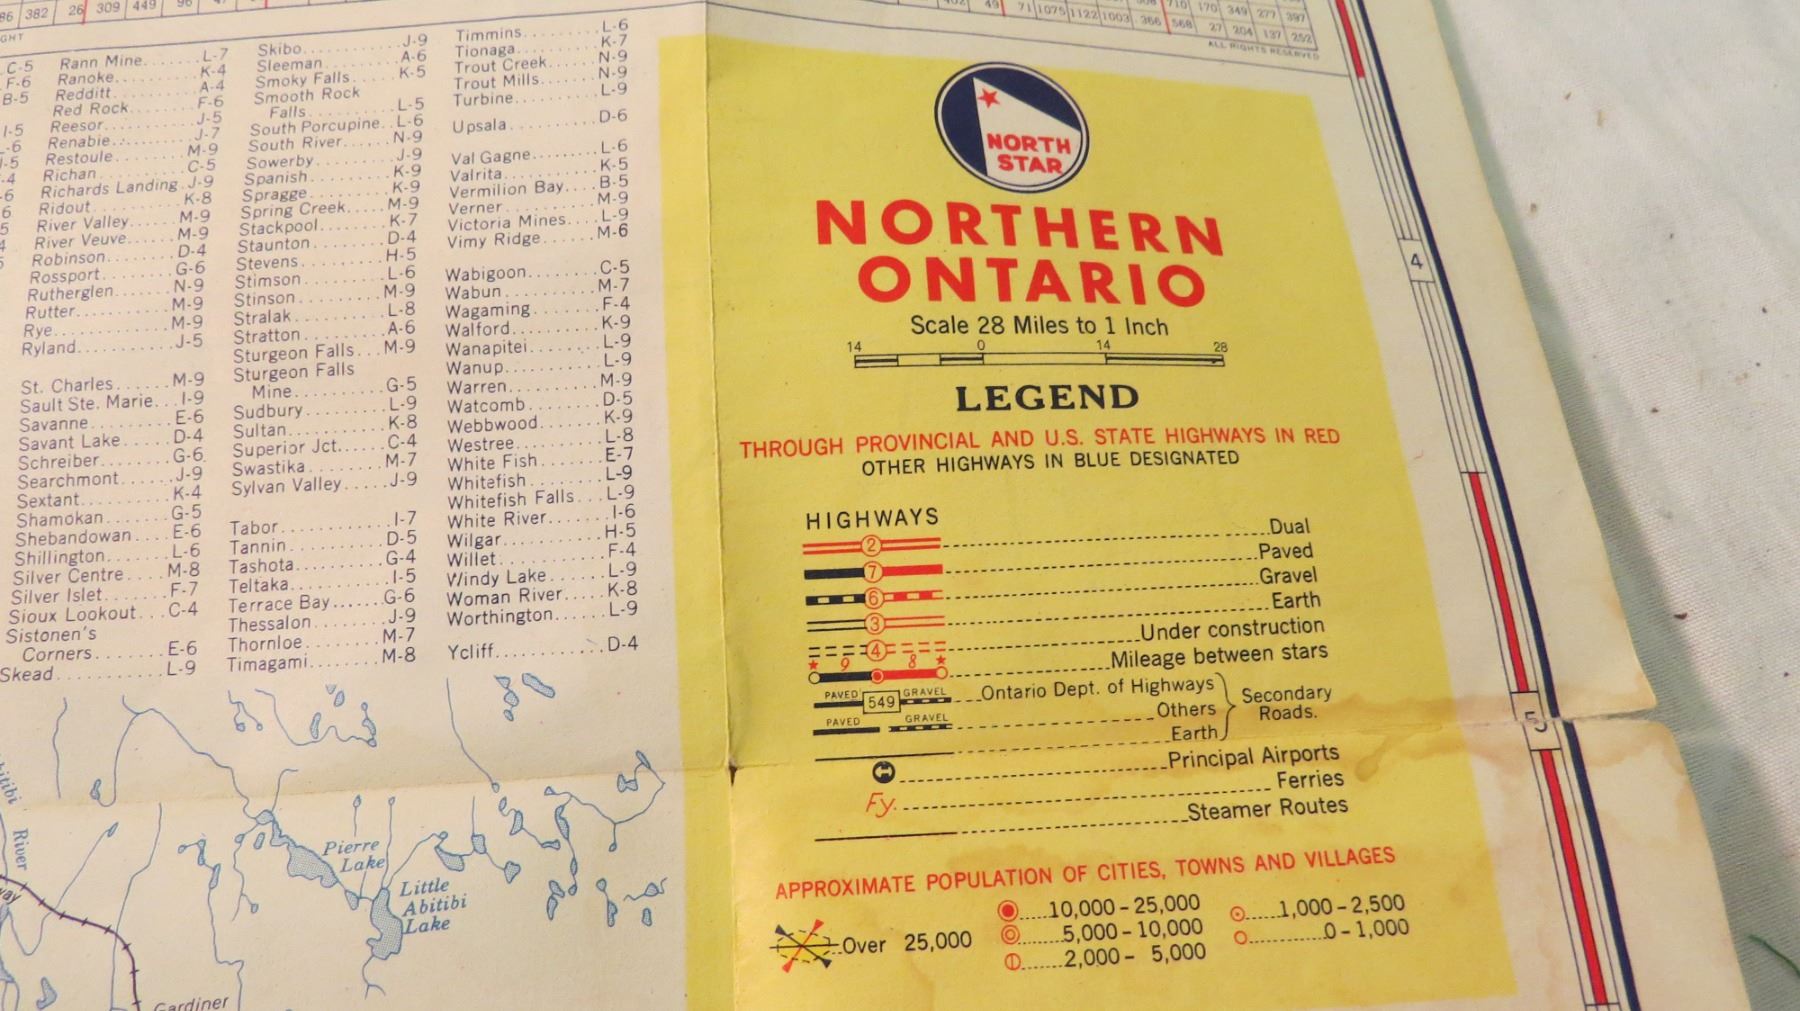 86 382 26 309 449 96
49 71 1075 1122 1003 366 568 27 204 137 252
710 170 349 277 397
ALL RIGHTS RESERVED
C-5
F-6
B-5
I-5
Rann Mine.......L-7
Ranoke.........K-4
Redditt..........A-4
Red Rock........F-6
Reesor..........J-5
Renabie.........J-7
Restoule........M-9
Richan..........C-5
Richards Landing.J-9
Ridout..........K-8
River Valley.....M-9
River Veuve.....M-9
Robinson........D-4
Rossport........G-6
Rutherglen......N-9
Rutter..........M-9
Rye.............M-9
Ryland..........J-5
St. Charles......M-9
Sault Ste. Marie...I-9
Savanne.........E-6
Savant Lake.....D-4
Schreiber........G-6
Searchmont......J-9
Sextant..........K-4
Shamokan.......G-5
Shebandowan....E-6
Shillington.......L-6
Silver Centre....M-8
Silver Islet.......F-7
Sioux Lookout...C-4
Sistonen's
Corners........E-6
Skead...........L-9
Skibo............J-9
Sleeman.........A-6
Smoky Falls.....K-5
Smooth Rock
Falls...........L-5
South Porcupine..L-6
South River......N-9
Sowerby.........J-9
Spanish.........K-9
Spragge.........K-9
Spring Creek....M-9
Stackpool.......K-7
Staunton........D-4
Stevens.........H-5
Stimson.........L-6
Stinson.........M-9
Stralak..........L-8
Stratton.........A-6
Sturgeon Falls...M-9
Sturgeon Falls
Mine...........G-5
Sudbury.........L-9
Sultan...........K-8
Superior Jct.....C-4
Swastika........M-7
Sylvan Valley.....J-9
Tabor............I-7
Tannin..........D-5
Tashota.........G-4
Teltaka..........I-5
Terrace Bay......G-6
Thessalon.......J-9
Thornloe........M-7
Timagami.......M-8
Timmins.........L-6
Tionaga.........K-7
Trout Creek.....N-9
Trout Mills......N-9
Turbine..........L-9
Upsala..........D-6
Val Gagne.......L-6
Valrita..........K-5
Vermilion Bay....B-5
Verner..........M-9
Victoria Mines....L-9
Vimy Ridge......M-6
Wabigoon.......C-5
Wabun..........M-7
Wagaming.......F-4
Walford.........K-9
Wanapitei.......L-9
Wanup..........L-9
Warren.........M-9
Watcomb........D-5
Webbwood......K-9
Westree.........L-8
White Fish.......E-7
Whitefish........L-9
Whitefish Falls...L-9
White River.......I-6
Wilgar...........H-5
Willet............F-4
Windy Lake......L-9
Woman River.....K-8
Worthington......L-9
Ycliff............D-4
River
Pierre
Lake
Little
Abitibi
Lake
Gardiner
NORTH
STAR
NORTHERN
ONTARIO
Scale 28 Miles to 1 Inch
14 0 14 28
LEGEND
THROUGH PROVINCIAL AND U.S. STATE HIGHWAYS IN RED
OTHER HIGHWAYS IN BLUE DESIGNATED
HIGHWAYS
2 Dual
7 Paved
6 Gravel
3 Earth
4 Under construction
9 8 Mileage between stars
PAVED 549 GRAVEL Ontario Dept. of Highways
PAVED GRAVEL Others
Earth
Secondary
Roads.
Principal Airports
Fy. Ferries
Steamer Routes
APPROXIMATE POPULATION OF CITIES, TOWNS AND VILLAGES
Over 25,000
10,000-25,000
5,000-10,000
2,000- 5,000
1,000-2,500
0-1,000
4
5